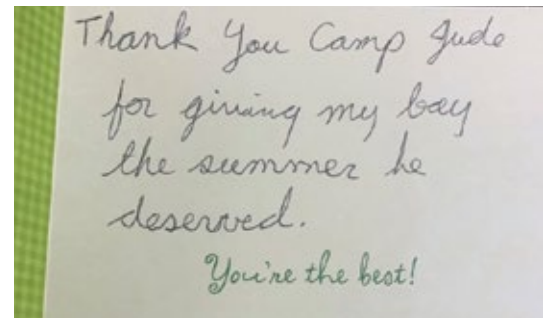 Thank You Camp Jude
for giving my boy
the summer he
deserved.
You're the best!